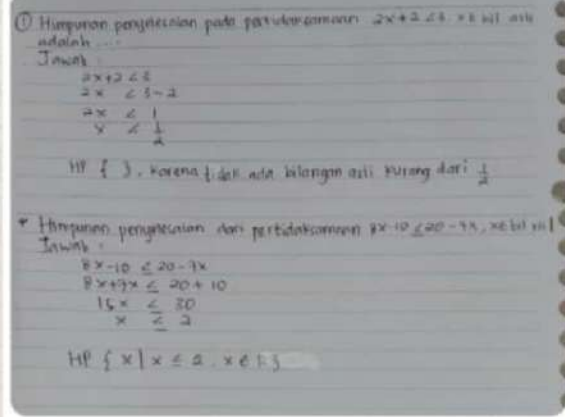 ① Himpunan penyelesaian pada pertidaksamaan 2x+2 < 3. x ∈ bil asli
adalah ....
Jawab :
2x+2 < 3
2x < 3-2
2x < 1
x < 1/2
HP { }, karena tidak ada bilangan asli kurang dari 1/2
* Himpunan penyelesaian dari pertidaksamaan 8x-10 ≤ 20-7x, x ∈ bil riil
Jawab :
8x-10 ≤ 20-7x
8x+7x ≤ 20+10
15x ≤ 30
x ≤ 2
HP { x | x ≤ 2, x ∈